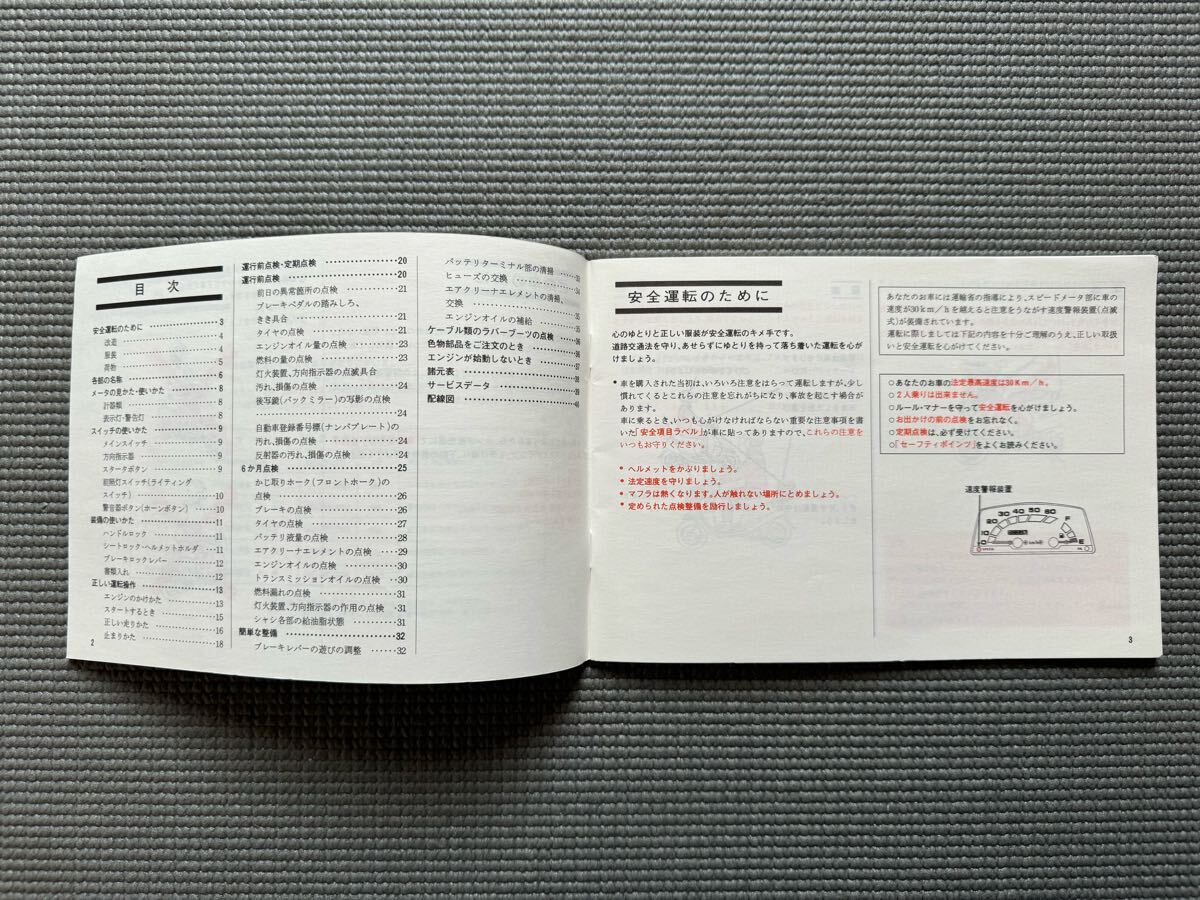 目 次
安全運転のために 3
改造 4
服装 4
荷物 5
各部の名称 6
メータの見かた・使いかた 8
計器類 8
表示灯・警告灯 8
スイッチの使いかた 9
メインスイッチ 9
方向指示器 9
スタータボタン 9
前照灯スイッチ(ライティング
スイッチ) 10
警音器ボタン(ホーンボタン) 10
装備の使いかた 11
ハンドルロック 11
シートロック・ヘルメットホルダ 11
ブレーキロックレバー 12
書類入れ 12
正しい運転操作 13
エンジンのかけかた 13
スタートするとき 15
正しい走りかた 16
止まりかた 18
2
運行前点検・定期点検 20
運行前点検 20
前日の異常箇所の点検 21
ブレーキペダルの踏みしろ、
きき具合 21
タイヤの点検 21
エンジンオイル量の点検 23
燃料の量の点検 23
灯火装置、方向指示器の点滅具合
汚れ、損傷の点検 24
後写鏡(バックミラー)の写影の点検
24
自動車登録番号標(ナンバプレート)の
汚れ、損傷の点検 24
反射器の汚れ、損傷の点検 24
6か月点検 25
かじ取りホーク(フロントホーク)の
点検 26
ブレーキの点検 26
タイヤの点検 27
バッテリ液量の点検 28
エアクリーナエレメントの点検 29
エンジンオイルの点検 30
トランスミッションオイルの点検 30
燃料漏れの点検 31
灯火装置、方向指示器の作用の点検 31
シャシ各部の給油脂状態 31
簡単な整備 32
ブレーキレバーの遊びの調整 32
バッテリターミナル部の清掃 33
ヒューズの交換 34
エアクリーナエレメントの清掃、
交換 35
エンジンオイルの補給 35
ケーブル類のラバーブーツの点検 36
色物部品をご注文のとき 36
エンジンが始動しないとき 37
諸元表 38
サービスデータ 39
配線図 40
安全運転のために
心のゆとりと正しい服装が安全運転のキメ手です。
道路交通法を守り、あせらずにゆとりを持って落ち着いた運転を心が
けましょう。
• 車を購入された当初は、いろいろ注意をはらって運転しますが、少し
慣れてくるとこれらの注意を忘れがちになり、事故を起こす場合が
あります。
車に乗るとき、いつも心がけなければならない重要な注意事項を書
いた「安全項目ラベル」が車に貼ってありますので、これらの注意を
いつもお守りください。
• ヘルメットをかぶりましょう。
• 法定速度を守りましょう。
• マフラは熱くなります。人が触れない場所にとめましょう。
• 定められた点検整備を励行しましょう。
あなたのお車には運輸省の指導により、スピードメータ部に車の
速度が30km/hを越えると注意をうながす速度警報装置(点滅
式)が装備されています。
運転に際しましては下記の内容を十分ご理解のうえ、正しい取扱
いと安全運転を心がけてください。
○あなたのお車の法定最高速度は30Km/h。
○2人乗りは出来ません。
○ルール・マナーを守って安全運転を心がけましょう。
○お出かけの前の点検をお忘れなく。
○定期点検は、必ず受けてください。
○「セーフティポインツ」をよくお読みください。
速度警報装置
0 10 20 30 40 50 60
km/h
F
E
3